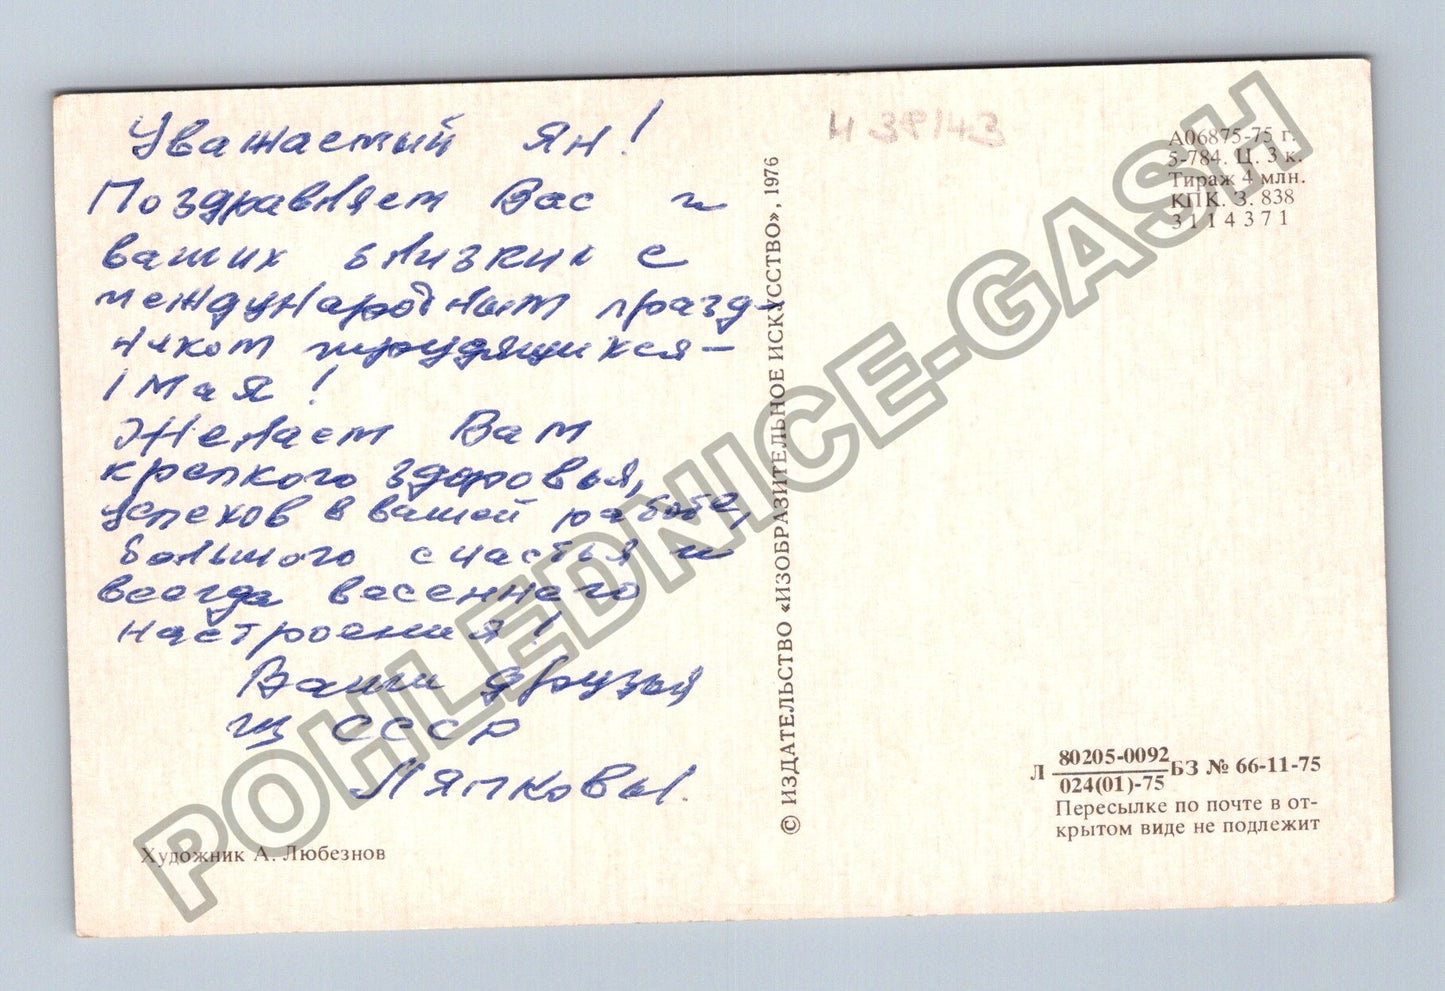 Уважаемый Ян!
Поздравляем Вас и
ваших близких с
международным празд-
ником трудящихся –
1 Мая!
Желаем Вам
крепкого здоровья,
успехов в вашей работе,
большого счастья и
всегда весеннего
настроения!
Ваши друзья
из СССР
Ляпковы.
Художник А. Любезнов
© ИЗДАТЕЛЬСТВО «ИЗОБРАЗИТЕЛЬНОЕ ИСКУССТВО», 1976
И 39/43
А06875-75 г.
5-784. Ц. 3 к.
Тираж 4 млн.
КПК. З. 838
3114371
Л 80205-0092/024(01)-75 БЗ № 66-11-75
Пересылке по почте в от-
крытом виде не подлежит
POHLEDNICE-GASH